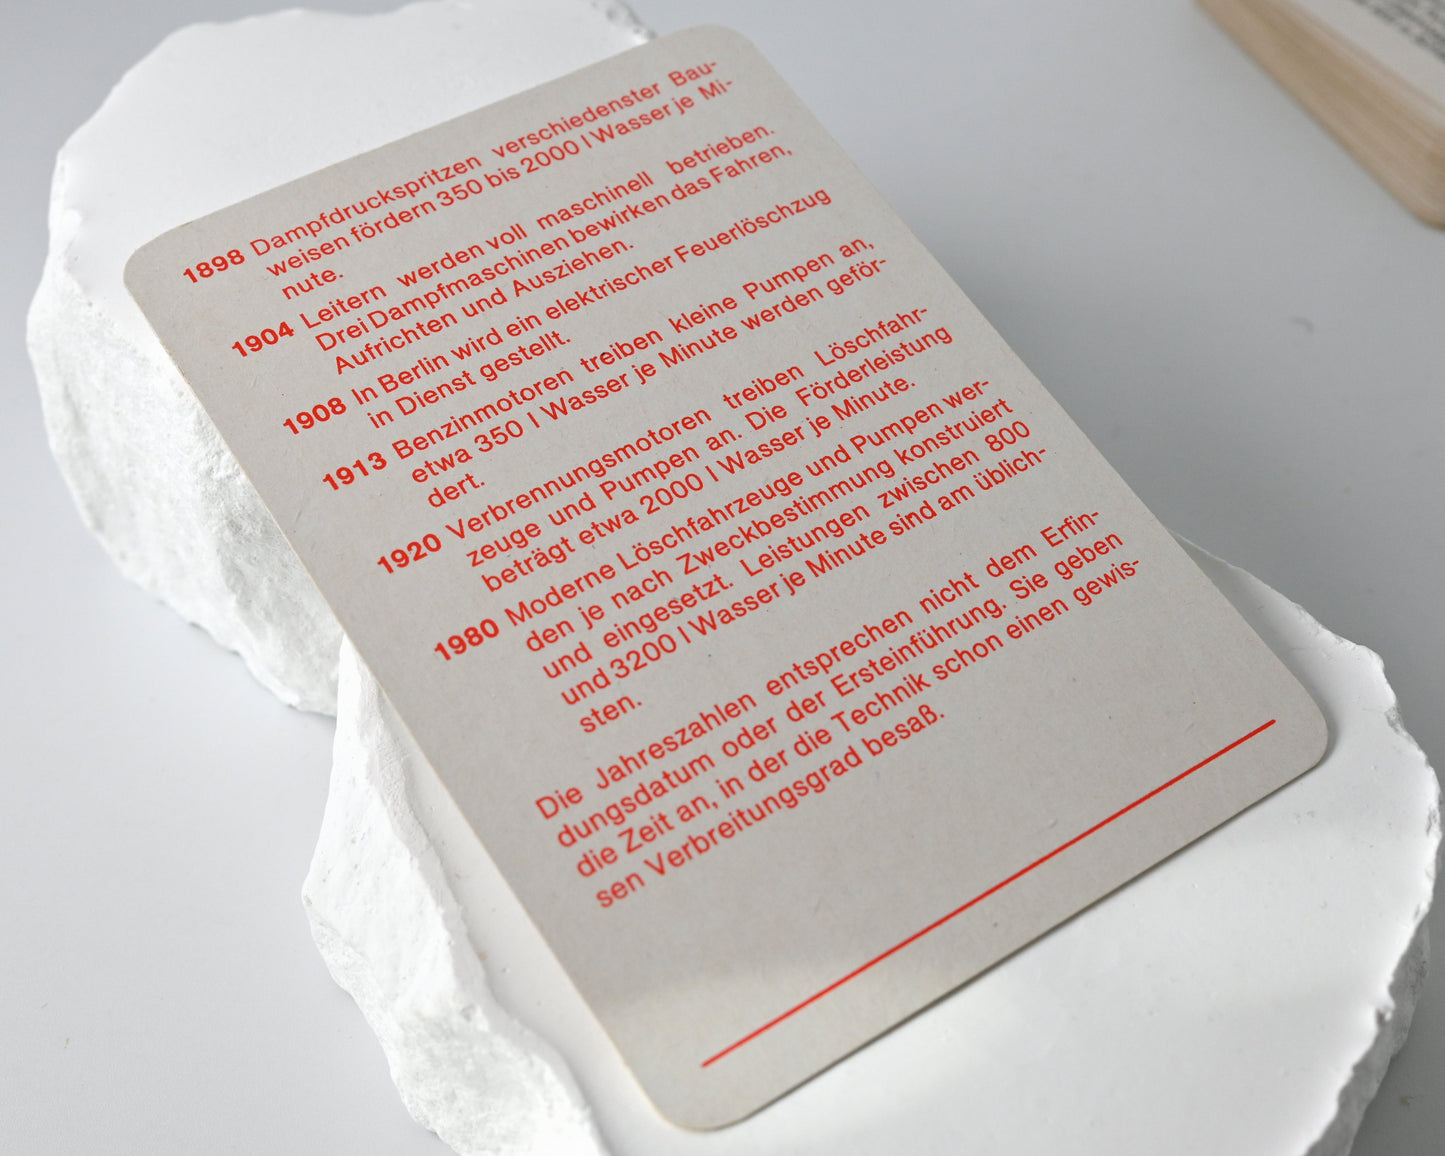 1898 Dampfdruckspritzen verschiedenster Bau-
weisen fördern 350 bis 2000 l Wasser je Mi-
nute.
1904 Leitern werden voll maschinell betrieben.
Drei Dampfmaschinen bewirken das Fahren,
Aufrichten und Ausziehen.
1908 In Berlin wird ein elektrischer Feuerlöschzug
in Dienst gestellt.
1913 Benzinmotoren treiben kleine Pumpen an,
etwa 350 l Wasser je Minute werden geför-
dert.
1920 Verbrennungsmotoren treiben Löschfahr-
zeuge und Pumpen an. Die Förderleistung
beträgt etwa 2000 l Wasser je Minute.
1980 Moderne Löschfahrzeuge und Pumpen wer-
den je nach Zweckbestimmung konstruiert
und eingesetzt. Leistungen zwischen 800
und 3200 l Wasser je Minute sind am üblich-
sten.
Die Jahreszahlen entsprechen nicht dem Erfin-
dungsdatum oder der Ersteinführung. Sie geben
die Zeit an, in der die Technik schon einen gewis-
sen Verbreitungsgrad besaß.